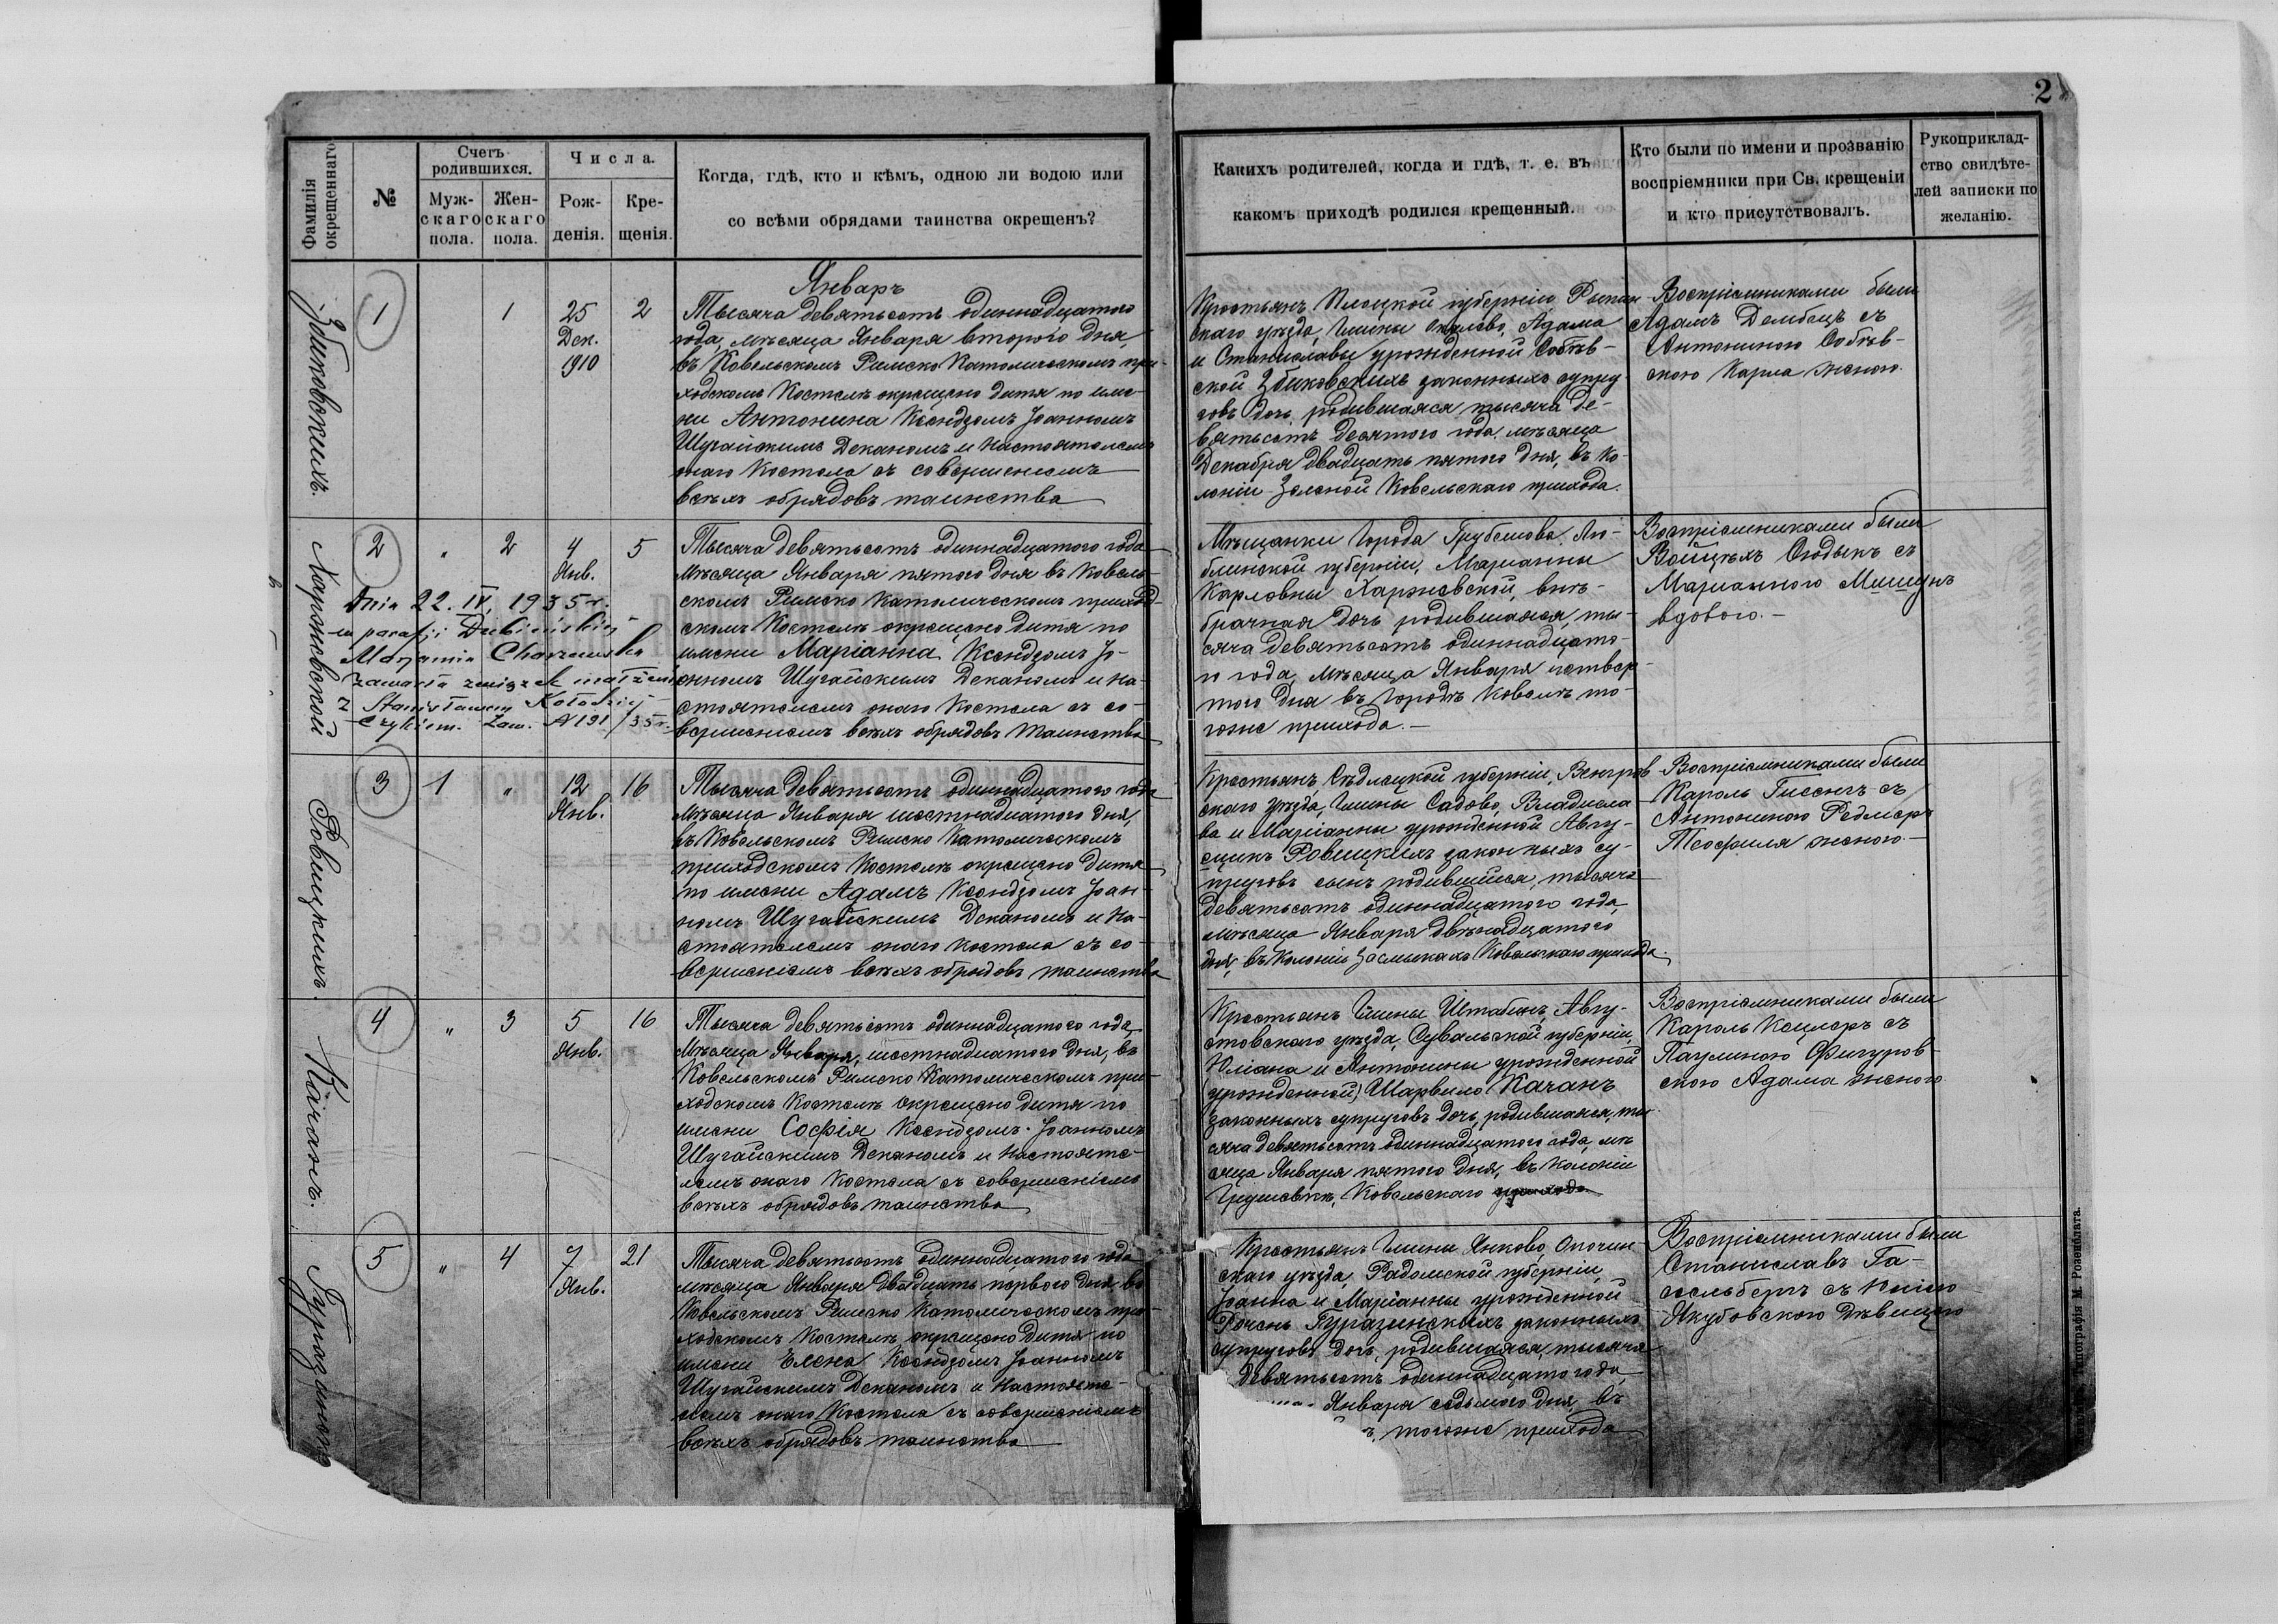 2
Фамилія окрещеннаго
№
Счетъ родившихся.
Муж-скаго пола.
Жен-скаго пола.
Числа.
Рож-денія.
Кре-щенія.
Когда, гдѣ, кто и кѣмъ, одною ли водою или
со всѣми обрядами таинства окрещенъ?
Какихъ родителей, когда и гдѣ, т. е. въ
какомъ приходѣ родился крещенный.
Кто были по имени и прозванію
воспріемники при Св. крещеніи
и кто присутствовалъ.
Рукоприклад-
ство свидѣте-
лей записки по
желанію.
Январь
Збиковскихъ.
1
1
25
Дек.
1910
2
Тысяча девятьсотъ одиннадцатого
года, мѣсяца Января второго дня,
въ Ковельскомъ Римско Католическомъ при-
ходскомъ Костелѣ окрещено дитя по име-
ни Антонина Ксендзомъ Іоанномъ
Шугайскимъ Деканомъ и Настоятелемъ
онаго Костела съ совершеніемъ
всѣхъ обрядовъ таинства
Крестьянъ Плоцкой губерніи Рыпин-
скаго уѣзда, Гмины Адама
и Станиславы урожденной Собѣв-
ской Збиковскихъ законныхъ супру-
говъ дочь, родившаяся тысяча де-
вятьсотъ десятого года, мѣсяца
Декабря двадцать пятого дня, въ Ко-
лоніи Зеленой Ковельскаго прихода.
Воспріемниками были
Адамъ Дембецъ съ
Антониною Собѣв-
скою Карла женою.
Харжевской
2
"
2
4
Янв.
5
Dnia 22. IV. 1935 r.
w parafji
Marjanna Charzewska
zawarła związek małżeński
z Stanisławem Kołodziej-
czykiem. Zaw. № 191/35 r.
Тысяча девятьсотъ одиннадцатого года
мѣсяца Января пятого дня въ Ковель-
скомъ Римско Католическомъ приход-
скомъ Костелѣ окрещено дитя по
имени Маріанна Ксендзомъ Іо-
анномъ Шугайскимъ Деканомъ и На-
стоятелемъ онаго Костела съ со-
вершеніемъ всѣхъ обрядовъ таинства
Мѣщанки Города Грубешова, Лю-
блинской губерніи, Марианны
Карловны Харжевской, внѣ-
брачная дочь родившаяся, ты-
сяча девятьсотъ одиннадцато-
го года, мѣсяца Января четвер-
того дня въ Городѣ Ковелѣ то-
гоже прихода.-
Воспріемниками были
Войцѣхъ съ
Марианною
вдовою.-
Ровицкихъ.
3
1
"
12
Янв.
16
Тысяча девятьсотъ одиннадцатого года
мѣсяца Января шестнадцатого дня,
въ Ковельскомъ Римско Католическомъ
приходскомъ Костелѣ окрещено дитя
по имени Адамъ Ксендзомъ Іоан-
номъ Шугайскимъ Деканомъ и На-
стоятелемъ онаго костела съ со-
вершеніемъ всѣхъ обрядовъ таинства
Крестьянъ, Сѣдлецкой губерніи, Венгров-
скаго уѣзда, Гмины Садово, Владисла-
ва и Маріанны урожденной Авгу-
щикъ Ровицкихъ законныхъ су-
пруговъ сынъ родившійся, тысяча
девятьсотъ одиннадцатого года,
мѣсяца Января двѣнадцатого
дня, въ Колоніи Засмыкахъ Ковельскаго прихода.
Воспріемниками были
Кароль съ
Антониною Редмеръ
Теофиля женою
Качанъ.
4
"
3
5
Янв.
16
Тысяча девятьсотъ одиннадцатого года,
Мѣсяца Января, шестнадцатого дня, въ
Ковельскомъ Римско Католическомъ при-
ходскомъ Костелѣ окрещено дитя по
имени Софія Ксендзомъ Іоанномъ
Шугайскимъ Деканомъ и Настояте-
лемъ онаго Костела съ совершеніемъ
всѣхъ обрядовъ таинства
Крестьянъ Гмины Штабинъ, Авгу-
стовскаго уѣзда, Сувальской губерніи,
Юліана и Антонины урожденной
(урожденной) Шарвило Качанъ
законныхъ супруговъ дочь, родившаяся, ты-
сяча девятьсотъ одиннадцатого года, мѣ-
сяца Января пятого дня, въ Колоніи
Грушевкѣ, Ковельскаго прихода
Воспріемниками были
Кароль Кецлеръ съ
Паулиною Фигуров-
скою Адама женою
5
"
4
7
Янв.
21
Тысяча девятьсотъ одиннадцатого года
мѣсяца Января двадцать первого дня, въ
Ковельскомъ Римско Католическомъ при-
ходскомъ Костелѣ окрещено дитя по
имени Елена Ксендзомъ Іоанномъ
Шугайскимъ Деканомъ и Настояте-
лемъ онаго Костела съ совершеніемъ
всѣхъ обрядовъ таинства
Крестьянъ Гмины Янково, Опочин-
скаго уѣзда, Радомской губерніи,
Іоанна и Маріанны урожденной
законныхъ
супруговъ дочь, родившаяся, тысяча
девятьсотъ одиннадцатого года,
Января седьмого дня, въ
тогоже прихода
Воспріемниками были
Станиславъ Га-
сельбергъ съ
Якубовскою Дѣвицею
Типографія М. Розенблата.